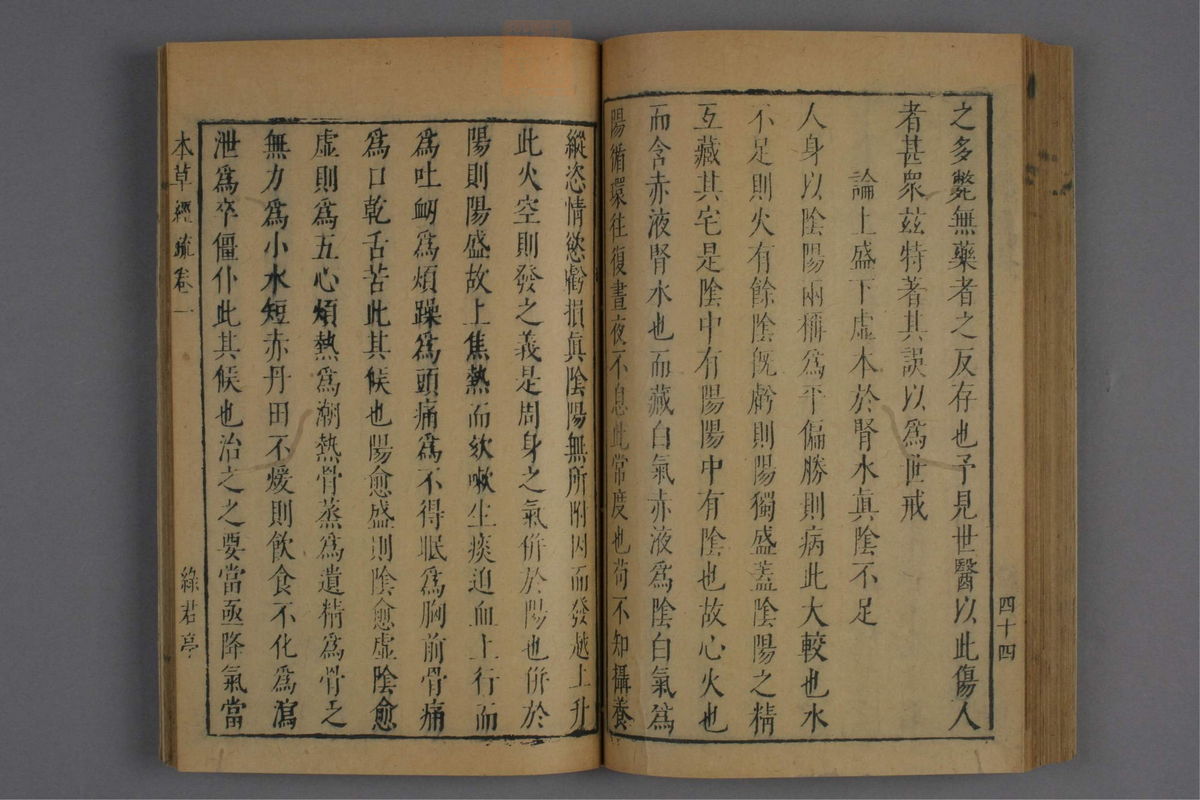 之多斃無藥者之反存也予見世醫以此傷人
者甚眾茲特著其誤以為世戒
論上盛下虛本於腎水真陰不足
人身以陰陽兩稱為平偏勝則病此大較也水
不足則火有餘陰旣虧則陽獨盛蓋陰陽之精
互藏其宅是陰中有陽陽中有陰也故心火也
而含赤液腎水也而藏白氣赤液為陰白氣為
陽循環往復晝夜不息此常度也苟不知攝養
四十四
縱恣情慾虧損眞陰陽無所附因而發越上升
此火空則發之義是周身之氣併於陽也併於
陽則陽盛故上焦熱而欬嗽生痰迫血上行而
為吐衂為煩躁為頭痛為不得眠為胸前骨痛
為口乾舌苦此其候也陽愈盛則陰愈虛陰愈
虛則為五心煩熱為潮熱骨蒸為遺精為骨乏
無力為小水短赤丹田不煖則飲食不化為瀉
泄為卒僵仆此其候也治之之要當亟降氣當
本草經疏卷一
綠君亭